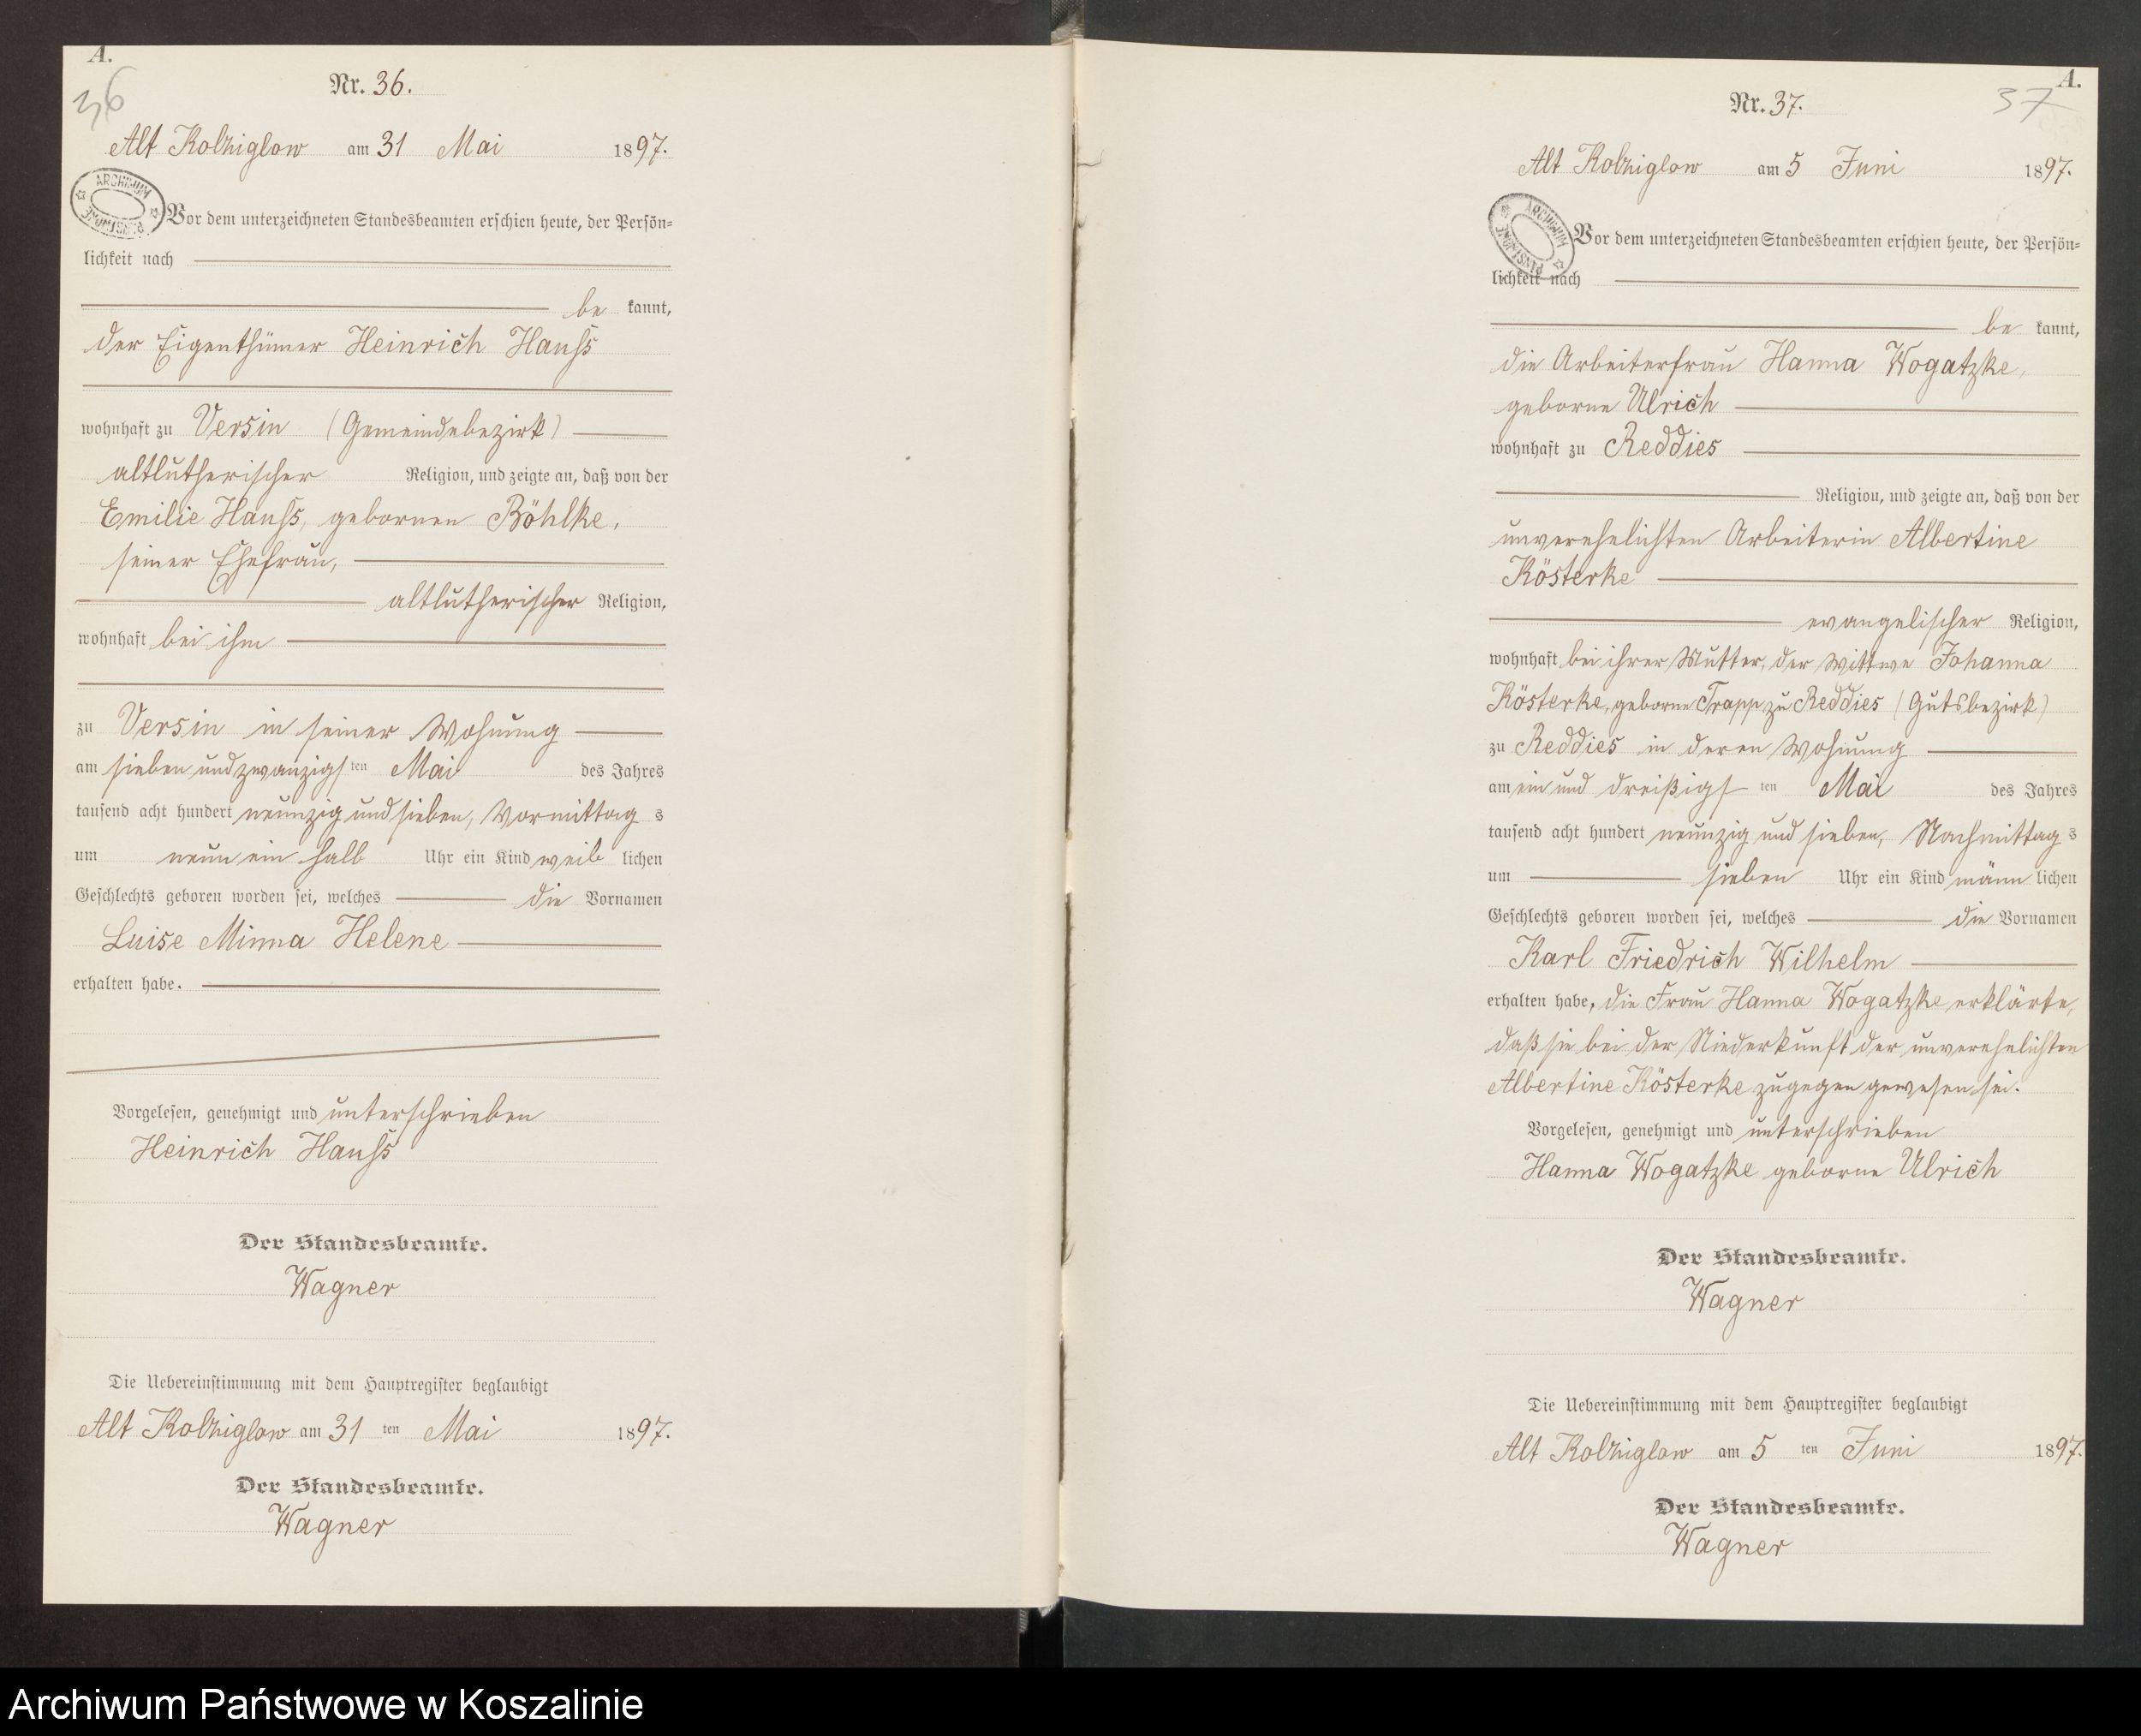 A.
36
Nr. 36.
Alt Kolziglow am 31 Mai 1897.
ARCHIWUM PAŃSTWOWE
Vor dem unterzeichneten Standesbeamten erschien heute, der Persön=
lichkeit nach
be kannt,
der Eigenthümer Heinrich Hauß
wohnhaft zu Versin (Gemeindebezirk)
altlutherischer Religion, und zeigte an, daß von der
Emilie Hauß, gebornen Böhlke,
seiner Ehefrau,
altlutherischer Religion,
wohnhaft bei ihm
zu Versin in seiner Wohnung
am sieben und zwanzigs ten Mai des Jahres
tausend acht hundert neunzig und sieben, Vormittag s
um neun ein halb Uhr ein Kind weib lichen
Geschlechts geboren worden sei, welches die Vornamen
Luise Minna Helene
erhalten habe.
Vorgelesen, genehmigt und unterschrieben
Heinrich Hauß
Der Standesbeamte.
Wagner
Die Uebereinstimmung mit dem Hauptregister beglaubigt
Alt Kolziglow am 31 ten Mai 1897.
Der Standesbeamte.
Wagner
A.
37
Nr. 37.
Alt Kolziglow am 5 Juni 1897.
ARCHIWUM PAŃSTWOWE
Vor dem unterzeichneten Standesbeamten erschien heute, der Persön=
lichkeit nach
be kannt,
die Arbeiterfrau Hanna Wogatzke,
geborne Ulrich
wohnhaft zu Reddies
Religion, und zeigte an, daß von der
unverehelichten Arbeiterin Albertine
Kösterke
evangelischer Religion,
wohnhaft bei ihrer Mutter, der Wittwe Johanna
Kösterke, geborne Trapp zu Reddies (Gutsbezirk)
zu Reddies in deren Wohnung
am ein und dreißigs ten Mai des Jahres
tausend acht hundert neunzig und sieben, Nachmittag s
um sieben Uhr ein Kind männ lichen
Geschlechts geboren worden sei, welches die Vornamen
Karl Friedrich Wilhelm
erhalten habe, die Frau Hanna Wogatzke erklärte,
daß sie bei der Niederkunft der unverehelichten
Albertine Kösterke zugegen gewesen sei.
Vorgelesen, genehmigt und unterschrieben
Hanna Wogatzke geborne Ulrich
Der Standesbeamte.
Wagner
Die Uebereinstimmung mit dem Hauptregister beglaubigt
Alt Kolziglow am 5 ten Juni 1897.
Der Standesbeamte.
Wagner
Archiwum Państwowe w Koszalinie